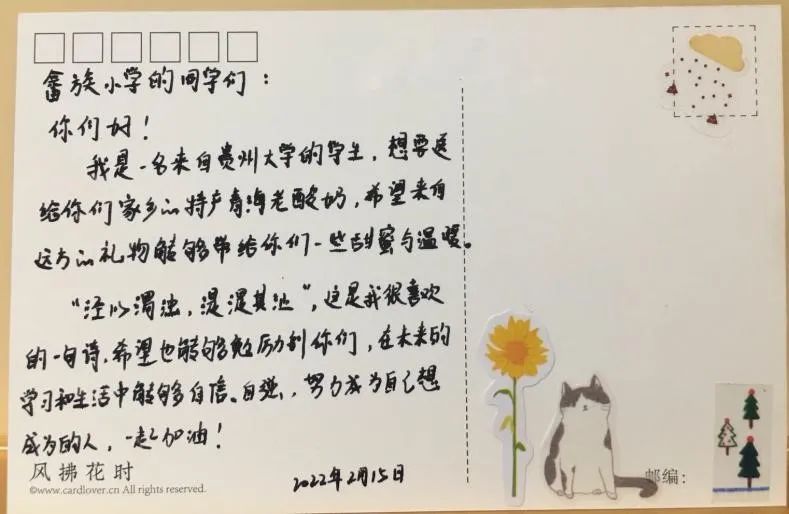 畲族小学的同学们：
你们好！
我是一名来自贵州大学的学生，想要送
给你们家乡的特产青海老酸奶，希望来自
远方的礼物能够带给你们一些甜蜜与温暖。
“泾以渭浊，湜湜其沚”，这是我很喜欢
的一句诗，希望也能够勉励到你们，在未来的
学习和生活中能够自信、自强，努力成为自己想
成为的人，一起加油！
风拂花时
©www.cardlover.cn All rights reserved.
2022年2月15日
邮编：